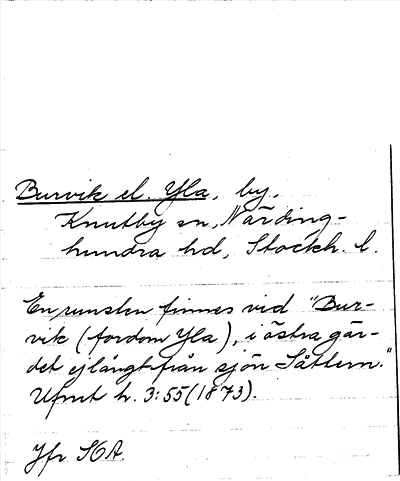 Burvik el. Yla, by,
Knutby sn, Närding-
hundra hd, Stockh. l.
En runsten finnes vid "Bur-
vik (fordom Yla), i östra gär-
det ej långt från sjön Såttern."
Ufmt h. 3:55 (1873).
Jfr SOA.